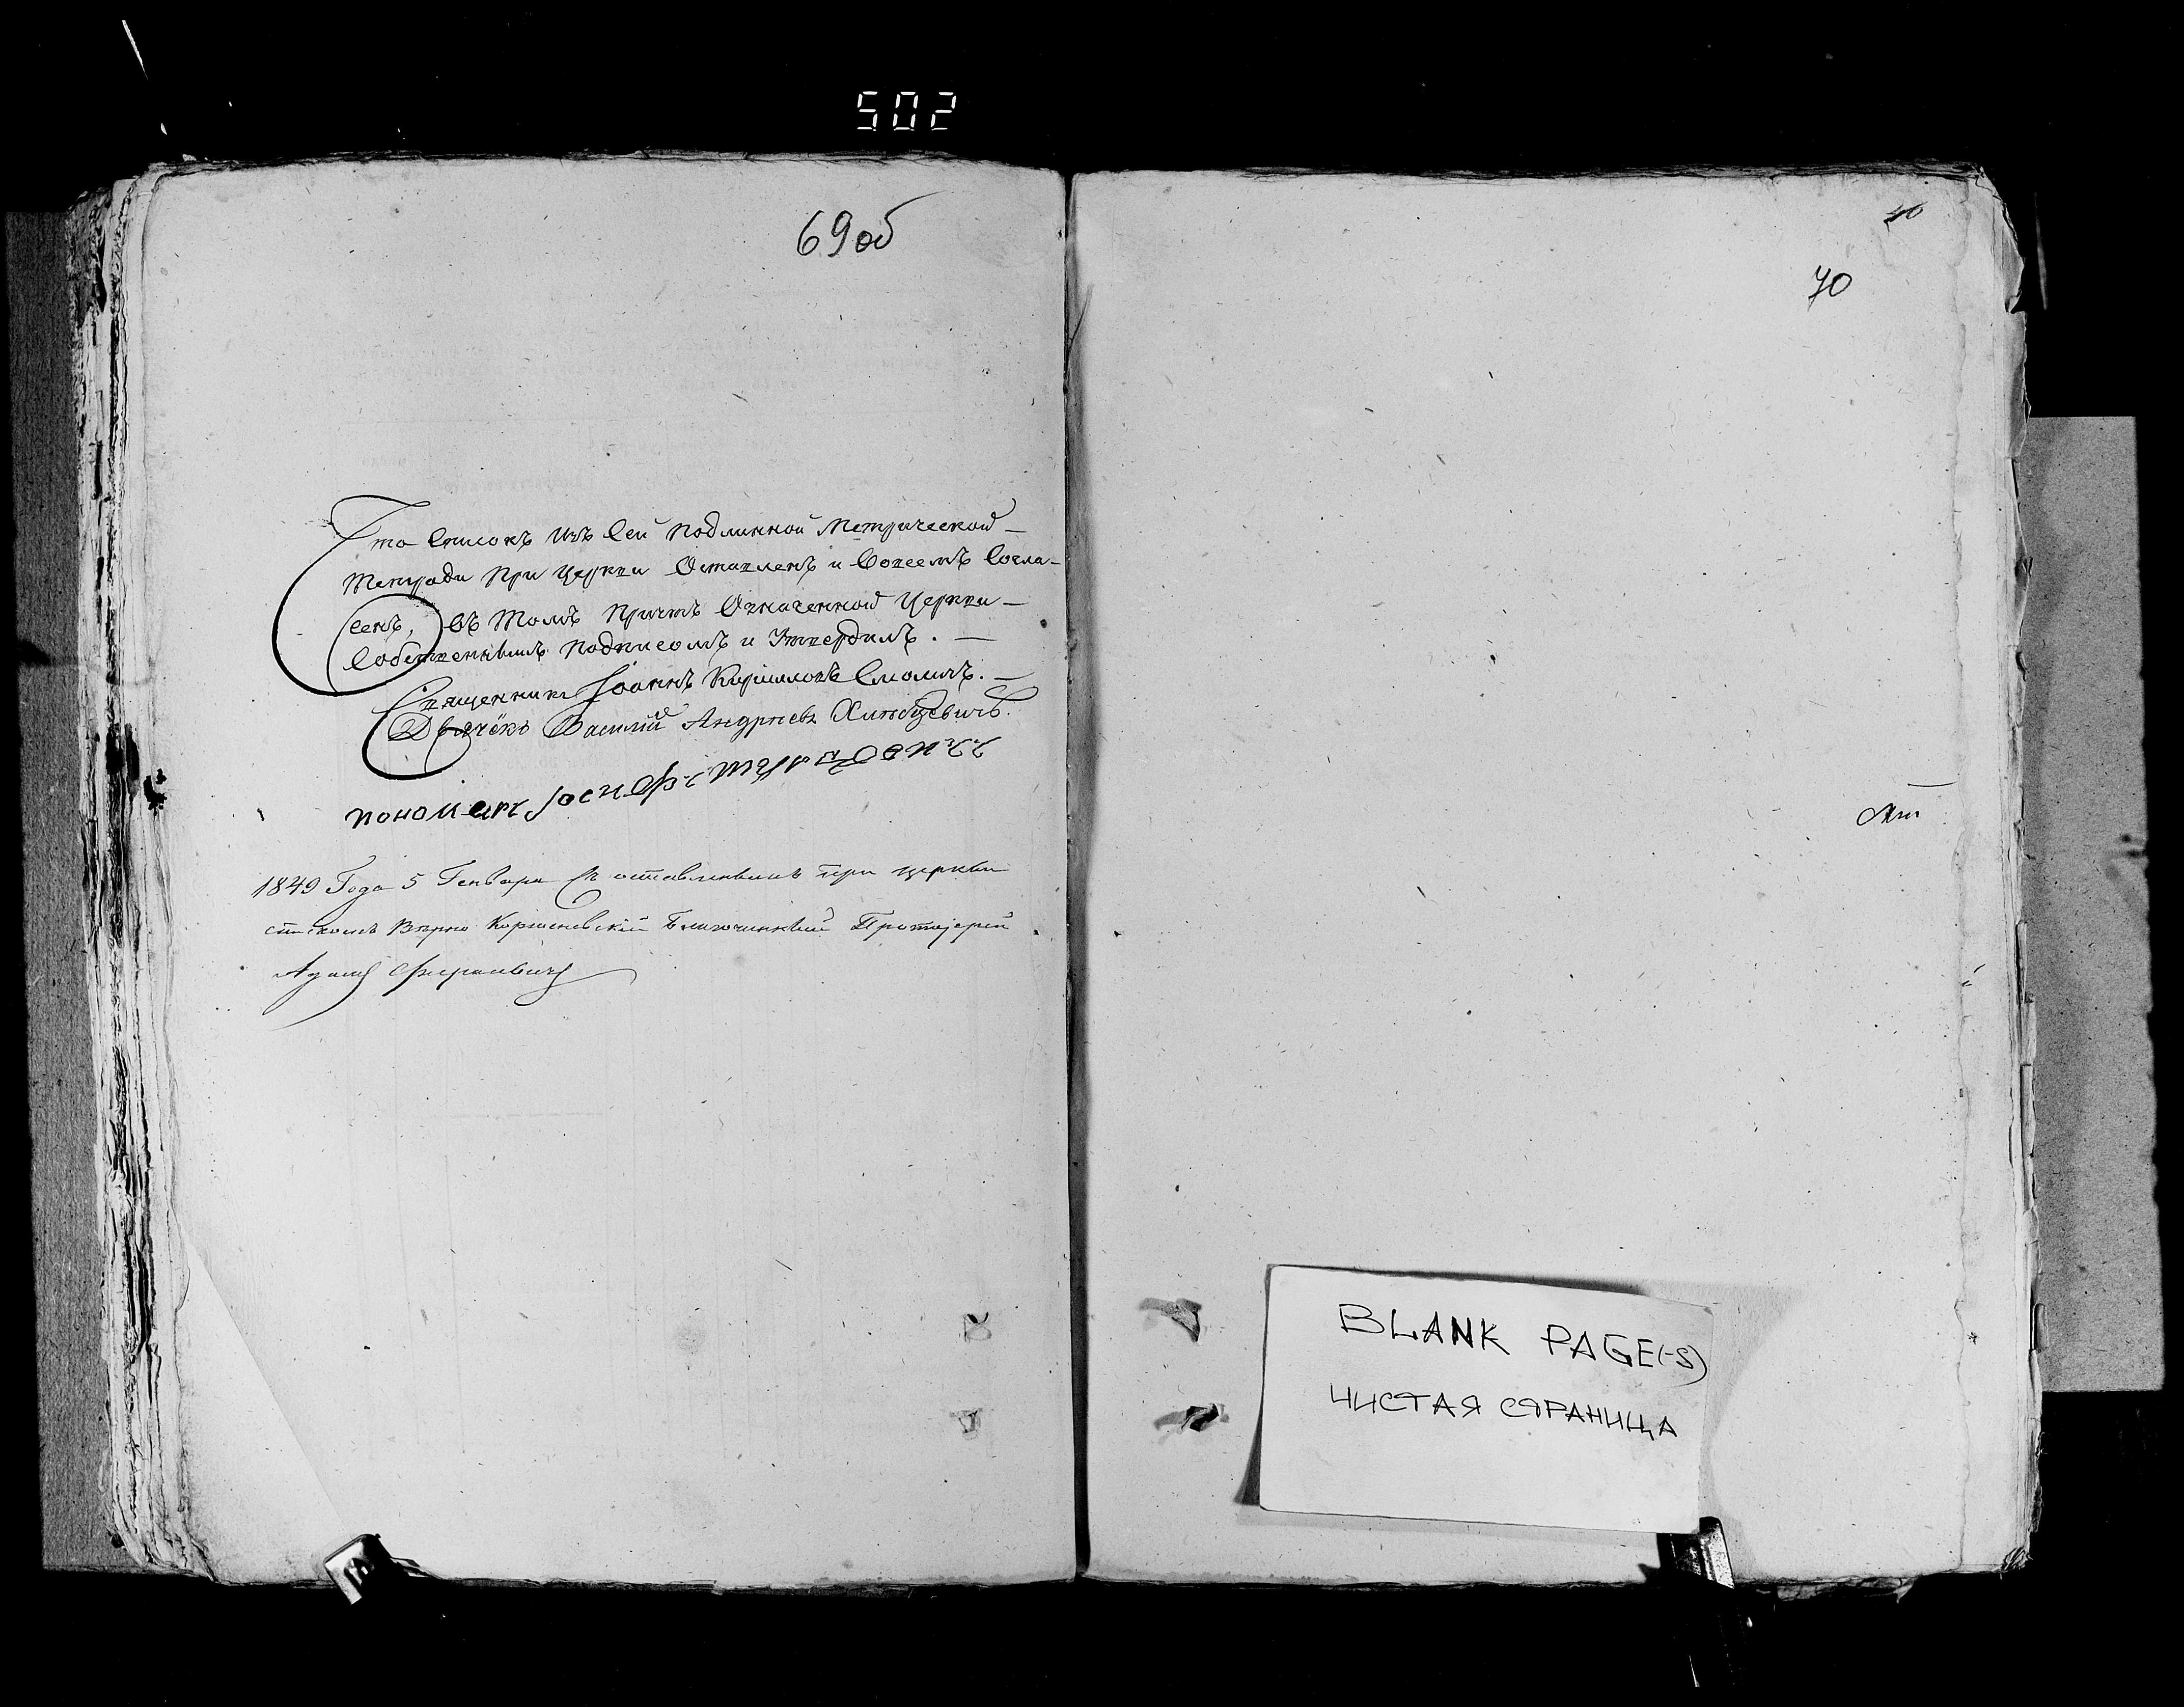 502
69 об
Что Списокъ изъ Сей подлинной Метрической –
Тетради при Церкви Оставленъ и Совсемъ Согла–
сенъ, въ томъ Причтъ Означенной Церкви –
Собственнымъ подписомъ и Утвердилъ. –
Священникъ Іоаннъ Кириловъ Смоличъ. –
Дьячёкъ Василій Андреевъ
пономарь Іосифъ
1849 Года 5 Генваря Съ оставленнымъ при церкви
спискомъ Вѣрно Благочинный Протоіерей
Адамъ
70
70
BLANK PAGE(-S)
ЧИСТАЯ СТРАНИЦА